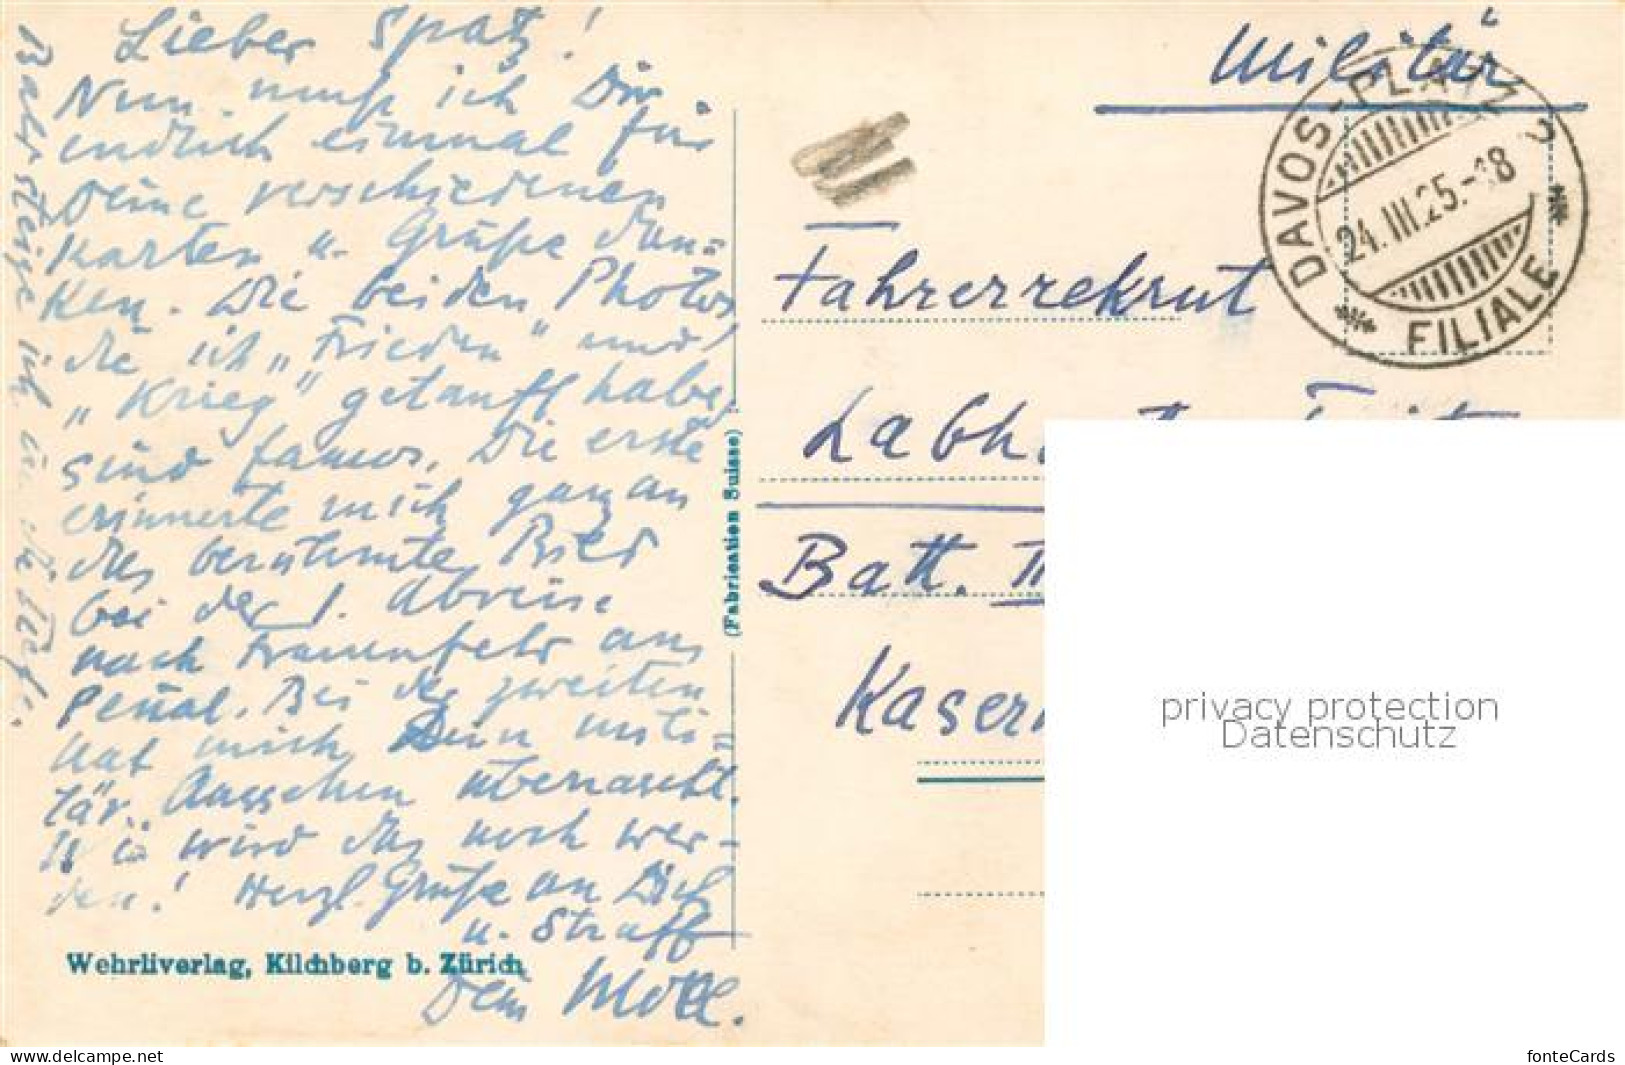 Lieber Spatz!
Nun muß ich Dir
endlich einmal für
Deine verschiedenen
Karten u. Grüße dan=
ken. Die beiden Photos,
die ich „Frieden" und
„Krieg" getauft habe,
sind famos. Die erste
erinnerte mich ganz an
das berühmte Bild
bei der 1. Abreise
nach Frauenfeld ans
Penal. Bei der zweiten
hat mich Dein mili-
tär. Aussehen überrascht.
wird das noch wer-
den! Herzl. Grüße an Dich
u. Straff
Dein
Bald steige ich in die
Wehrliverlag, Kilchberg b. Zürich
(Fabrication Suisse)
Militär
DAVOS-PLATZ 2
24.III.25.-18
FILIALE
Fahrerrekrut
Labh
Batt. II
Kaser
privacy protection
Datenschutz
www.delcampe.net
fonteCards